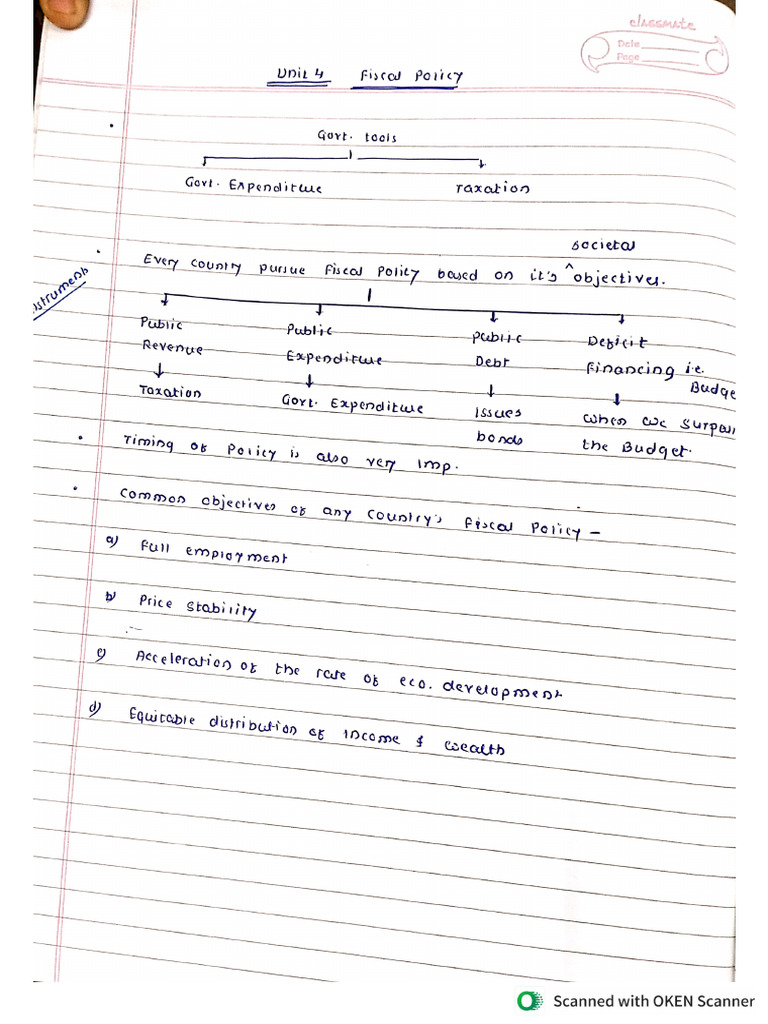 classmate
Date
Page
Unit 4 Fiscal Policy
Govt. tools
Govt. Expenditure Taxation
societal
Every country pursue fiscal policy based on it's ^ objectives.
nstruments
Public Public Public Deficit
Revenue Expenditure Debt Financing i.e.
Budge
Taxation Govt. Expenditure Issues When we surpas
bonds the Budget.
Timing of Policy is also very imp.
Common objectives of any country's fiscal policy –
a) Full employment
b) Price stability
c) Acceleration of the rate of eco. development
d) Equitable distribution of income & wealth
Scanned with OKEN Scanner